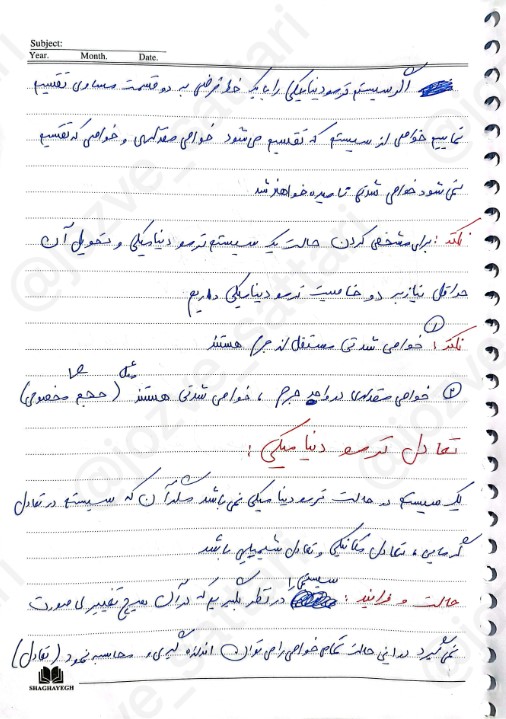 Subject:
Year. Month. Date.
اگر سیستم ترمودینامیکی را با یک خط فرضی به دو قسمت مساوی تقسیم
نماییم خواصی از سیستم که تقسیم می شود خواص مقداری و خواصی که تقسیم
نمی شود خواص شدتی نامیده خواهند شد
نکته: برای مشخص کردن حالت یک سیستم ترمودینامیکی و تحویل آن
حداقل نیاز به دو خاصیت ترمودینامیکی داریم
نکته: ① خواص شدتی مستقل از جرم هستند
② خواص مقداری در واحد جرم، خواص شدتی هستند مثل (حجم مخصوص)
تعادل ترمودینامیکی:
یک سیستم در حالت ترمودینامیکی نمی باشد مگر آن که سیستم در تعادل
گرمایی، تعادل مکانیکی و تعادل شیمیایی باشد
حالت و فرایند: سیستمی را در نظر بگیریم که در آن هیچ تغییری صورت
نمی گیرد در این حالت تمام خواص را می توان اندازه گیری و محاسبه نمود (تعادل)
SHAGHAYEGH
@jozve_sattari